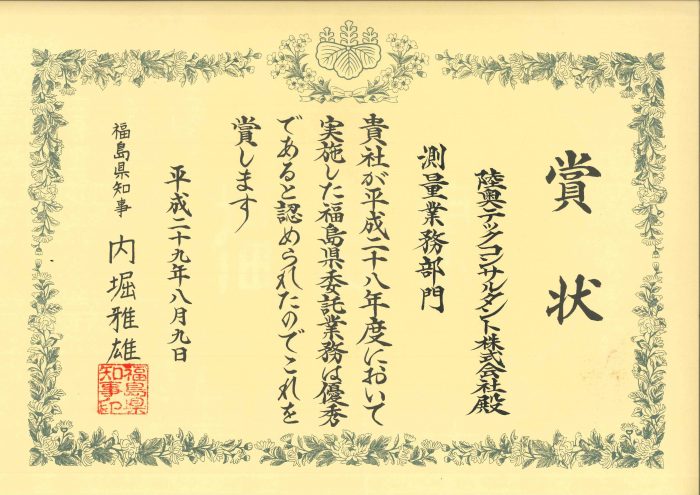 賞状
陸奥テックコンサルタント株式会社殿
測量業務部門
貴社が平成二十八年度において
実施した福島県委託業務は優秀
であると認められたのでこれを
賞します
平成二十九年八月九日
福島県知事 内堀雅雄
福島県
知事印